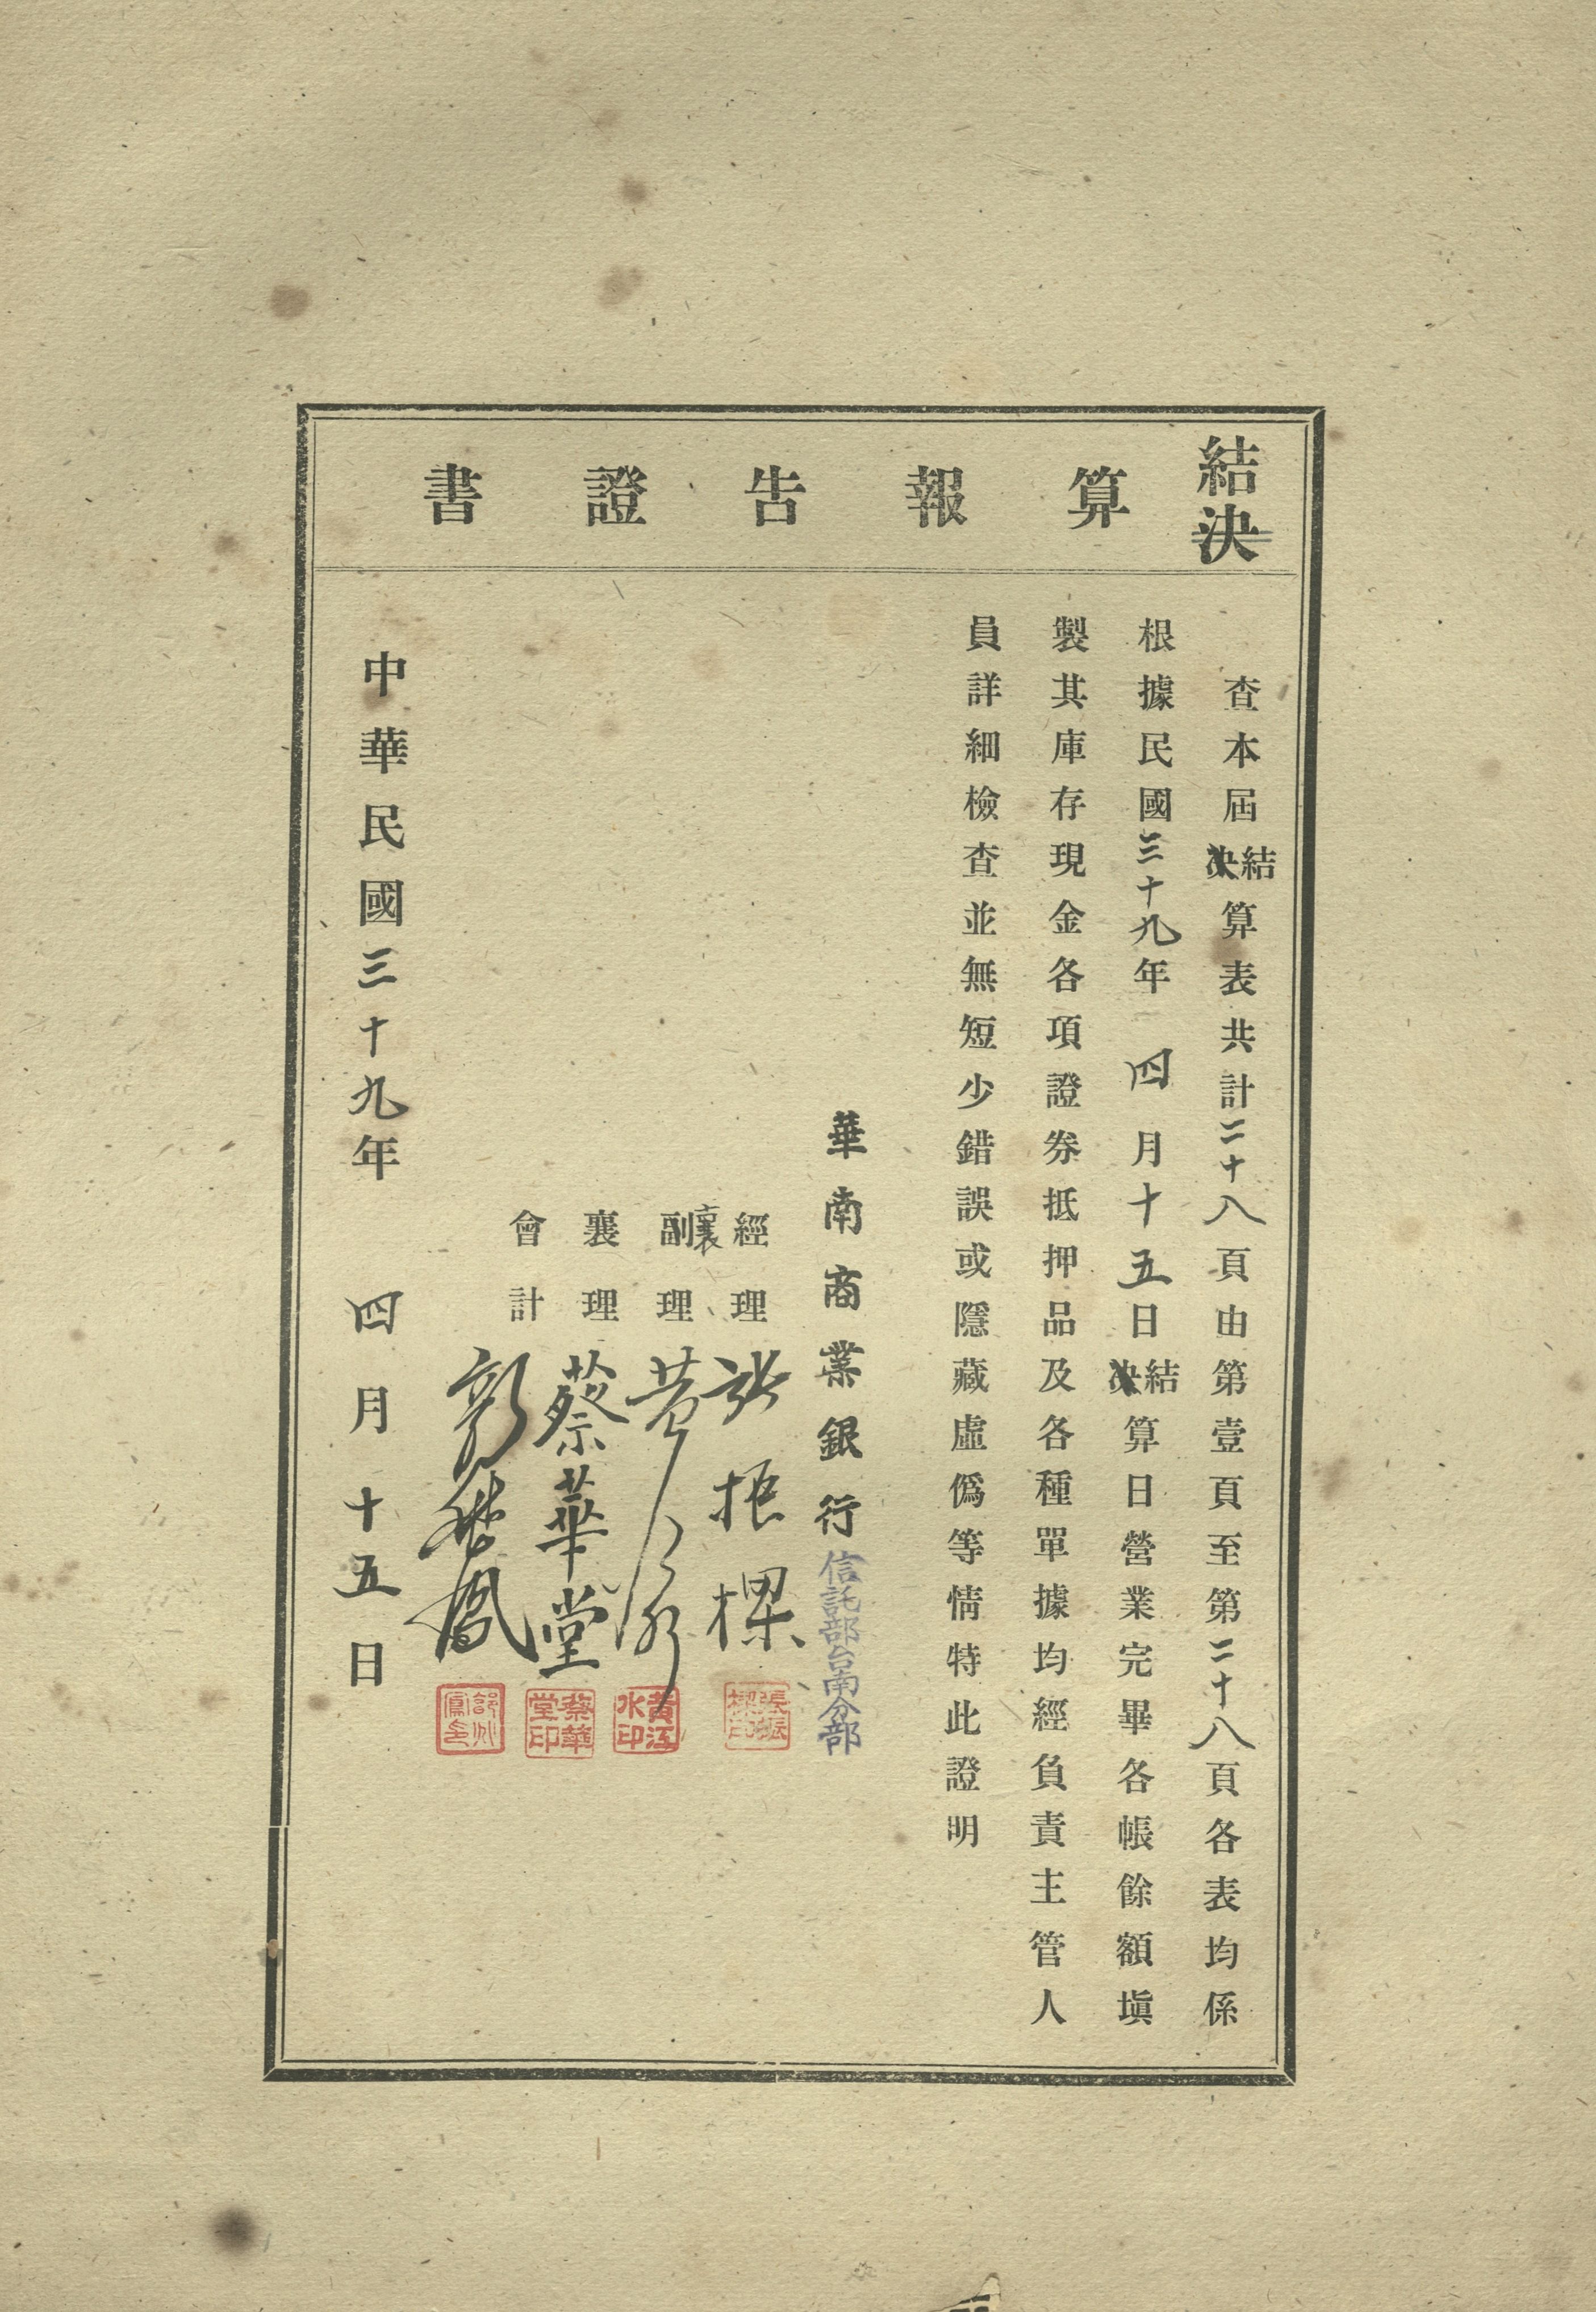 結決算報告證書
查本屆結決算表共計二十八頁由第壹頁至第二十八頁各表均係
根據民國三十九年四月十五日結決算日營業完畢各帳餘額塡
製其庫存現金各項證券抵押品及各種單據均經負責主管人
員詳細檢查並無短少錯誤或隱藏虛僞等情特此證明
華南商業銀行信託部台南分部
經理 張振樑
張振樑印
副襄理 黃江水
黃江水印
襄理 蔡華堂
蔡華堂印
會計
中華民國三十九年四月十五日